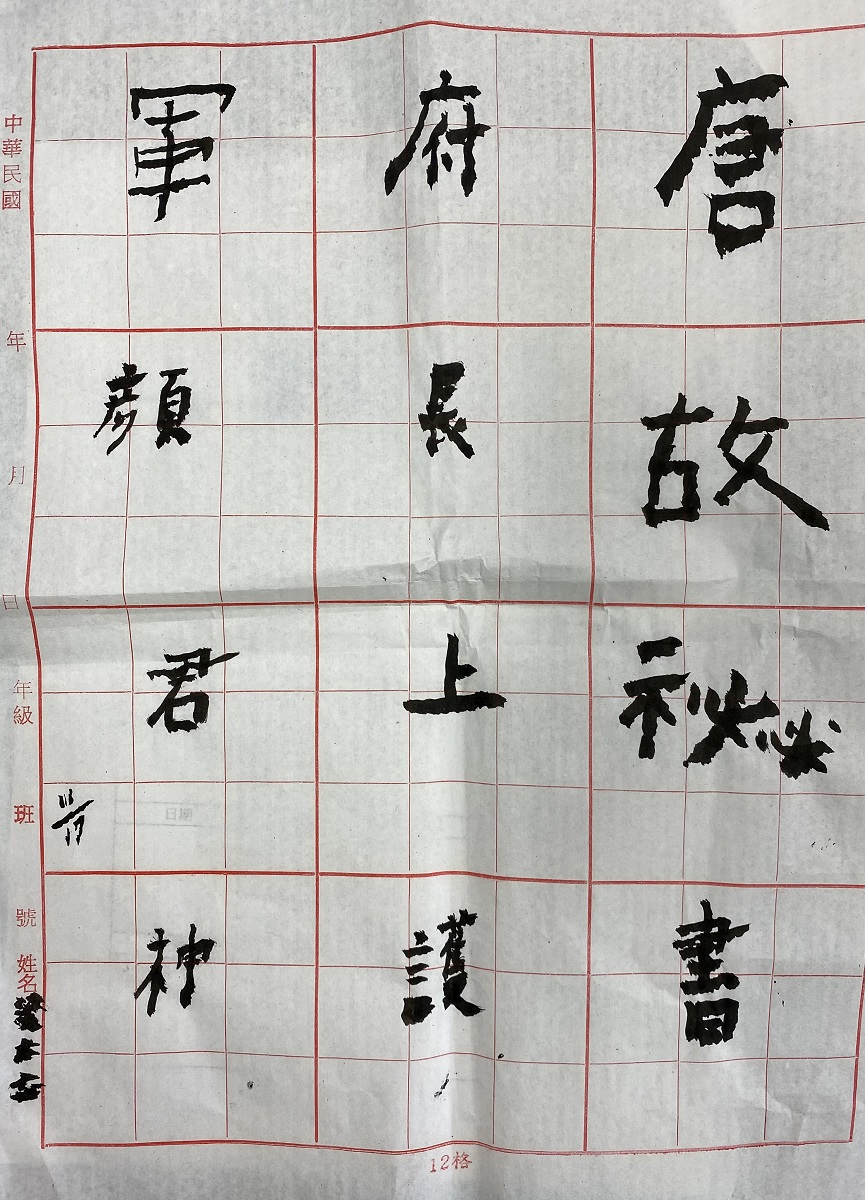 唐故祕書
府長上護
軍顏君神
11/17
中華民國 年 月 日 年級 班 號 姓名
12格